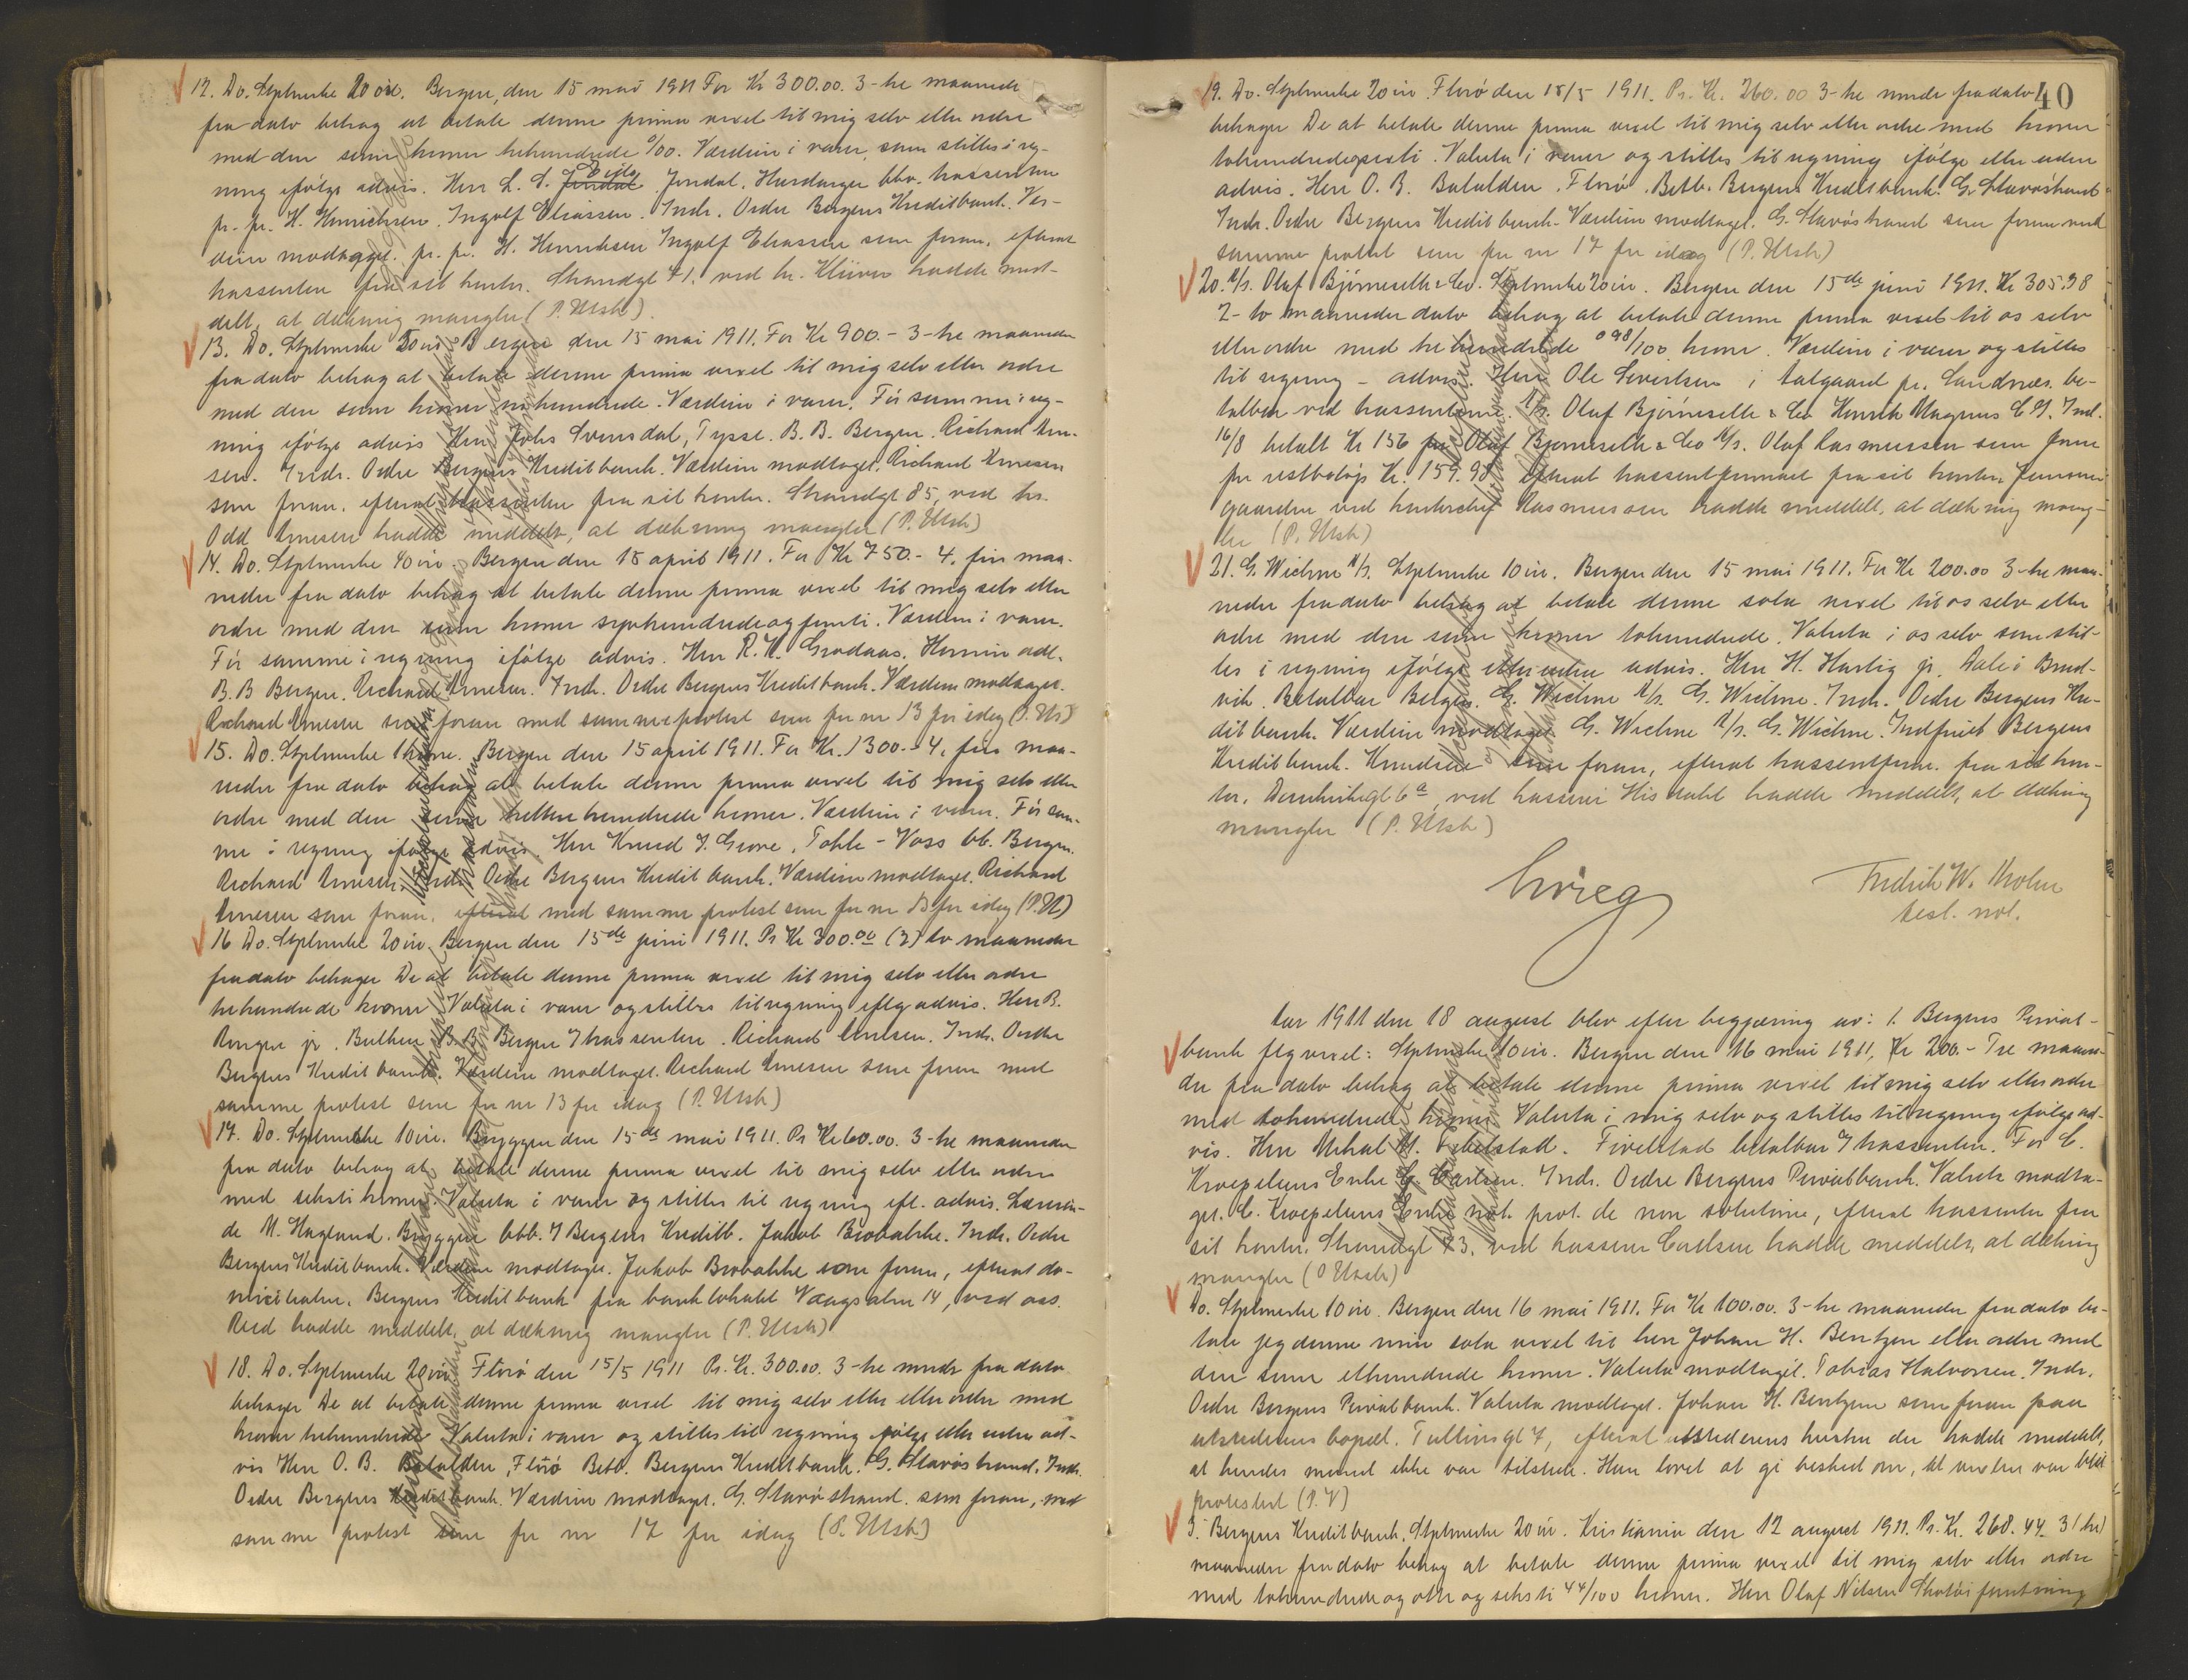 12. Do. Stplmerke 20 øre. Bergen, den 15 mai 1911 For Kr 300.00. 3-tre maaneder
fra dato behag at betale denne prima vexel til mig selv eller ordre
med den sum kroner trehundrede 0/00. Værdien i varer, som stilles i reg-
ning ifølge advis. Herr L. S. Jondal. Hardanger
pr. pr. H. Hinrichsen. Ingolf Eliassen. Indr. Ordre Bergens Kreditbank. Vær-
dien modtaget. pr. pr. H. Hinrichsen Ingolf Eliassen som foran, efterat
trassenten fra sit kontor. Strandgt 71. ved hr. Klüver hadde med-
delt, at dækning mangler (P. Utsk).
13. Do. Stplmerke 50 øre Bergen den 15 mai 1911. For Kr 900.- 3-tre maaneder
fra dato behag at betale denne prima vexel til mig selv eller ordre
med den sum kroner nihundrede. Værdien i varer. Før samme i reg-
ning ifølge advis Herr Johs Svensdal, Tysse. B. B. Bergen. Richard Arne-
sen. Indr. Ordre Bergens Kreditbank. Værdien modtaget. Richard Arnesen
som foran, efterat trassenten fra sit kontor. Strandgt 85, ved hr.
Odd Arnesen hadde meddelt, at dækning mangler (P. Utsk)
14. Do. Stplmerke 40 øre. Bergen den 15 april 1911. For Kr 750.- 4. fire maa-
neder fra dato behag at betale denne prima vexel til mig selv eller
ordre med den sum kroner syvhundredeogfemti. Værdien i varer.
Før samme i regning ifølge advis. Herr R. K. Grodaas. Hornindal.
B. B Bergen. Richard Arnesen. Indr. Ordre Bergens Kreditbank. Værdien modtaget.
Richard Arnesen som foran med samme protest som for nr 13 for idag (P. Ut)
15. Do. Stplmerke 1 krone. Bergen den 15 april 1911. For Kr. 1300.- 4. fire maa-
neder fra dato behag at betale denne prima vexel til mig selv eller
ordre med den sum trettenhundrede kroner. Værdien i varer. Før sam-
me i regning ifølge advis. Herr Knud J. Grove, - Voss bb. Bergen.
Richard Arnesen. Indr. Ordre Bergens Kreditbank. Værdien modtaget. Richard
Arnesen som foran, efterat med samme protest som for nr 13 for idag (P. Ut)
16 Do. Stplmerke 20 øre. Bergen den 15de juni 1911. Pr Kr 300.00 (2) to maaneder
fradato behager De at betale denne prima vexel til mig selv eller ordre
trehundrede kroner Valuta i varer og stilles til regning iflg advis. Herr B.
Ringen jr. Bulken B. B. Bergen I trassenten. Richard Arnesen. Indr. Ordre
Bergens Kreditbank. Værdien modtaget. Richard Arnesen som foran med
samme protest som for nr 13 for idag (P. Utsk)
17. Do. Stplmerke 10 øre. Bryggen den 15de mai 1911. Pr Kr 60.00. 3-tre maaneder
fra dato behag at betale denne prima vexel til mig selv eller ordre
med seksti kroner Valuta i varer og stilles til regning ifl. advis. Lærerin-
de M. Haglund. Bryggen bbb. I Bergens Kreditb. Jakob Brobakke. Indr. Ordre
Bergens Kreditbank. Værdien modtaget. Jakob Brobakke som foran, efterat do-
miciliaten. Bergens Kreditbank fra banklokalet Vaagsalm 14, ved ass.
Reid hadde meddelt, at dækning mangler (P. Utsk)
18. Do. Stplmerke 20 øre Florø den 15/5 1911 Pr. Kr. 300.00. 3-tre mndr fra dato
behager De at betale denne prima vexel til mig selv eller eller ordre med
kroner trehundrede Valuta i varer og stilles til regning ifølge eller uden ad-
vis Herr O. B. Batalden, Florø Betb. Bergens Kreditbank. G. Stavøstrand. Indr.
Ordre Bergens Kreditbank. Værdien modtaget. G. Stavøstrand. som foran, med
samme protest som for nr 17 for idag (P. Utsk)
40
19. Do. Stplmerke 20 øre Florø den 15/5 1911. Pr. Kr. 260.00 3-tre mndr fradato
behager De at betale denne prima vexel til mig selv eller ordre med kroner
tohundredeogseksti. Valuta i varer og stilles til regning ifølge eller uden
advis. Herr O. B. Batalden. Florø. Betb. Bergens Kreditbank. G. Stavøstrand
Indr. Ordre Bergens Kreditbank. Værdien modtaget. G. Stavøstrand som foran med
samme protest som for nr 17 for idag (P. Utsk)
20. A/s. Olaf Bjørneseth & Co. Stplmerke 20 øre. Bergen den 15de juni 1911. Kr 305.98
2-to maaneder dato behag at betale denne prima vexel til os selv
eller ordre med trehundrede 98/100 kroner. Værdien i varer og stilles
til regning - advis. Herr Ole Sivertsen i Aalgaard pr. Sandnæs. be-
talbar ved trassentene. A/s. Olaf Bjørneseth & Co Henrik Magnus Indr.
16/8 betalt Kr 156 pr. Olaf Bjørneseth & Co A/s. Olaf Rasmussen som foran
for restbeløp Kr. 159.98 efterat trassentfirmaet fra sit kontor,
gaarden ved kontorchef Rasmussen hadde meddelt, at dækning mang-
ler (P. Utsk)
21. G. Wichne A/s. Stplmerke 10 øre. Bergen den 15 mai 1911. For Kr 200.00 3-tre maa-
neder fradato behag at betale denne sola vexel til os selv eller
ordre med den sum kroner tohundrede. Valuta i os selv som stil-
les i regning ifølge eller uden advis. Herr H. Hartig jr. Dale i Brud-
vik. Betalbar Bergen. G. Wichne A/s. G. Wichne. Indr. Ordre Bergens Kre-
ditbank. Værdien modtaget G. Wichne A/s. G. Wichne. Indfriet Bergens
Kreditbank. Knudsen som foran, efterat trassentfirm. fra sit kon-
tor. 6a, ved kasserer hadde meddelt, at dækning
mangler (P. Utsk)
Grieg
Fredrik W. Krohn
best. not.
Aar 1911 den 18 august blev efter begjæring av: 1. Bergens Privat-
bank flg vexel: Stplmerke 10 øre. Bergen den 16 mai 1911, Kr 200.- Tre maane-
der fra dato behag at betale denne prima vexel til mig selv eller ordre
med tohundrede kroner Valuta i mig selv og stilles til regning ifølge ad-
vis. Herr Mikal M. Fivelstad. Fivelstad betalbar I trassenten. For C.
Kroepeliens Enke Carlsen. Indr. Ordre Bergens Privatbank. Valuta modta-
get. C. Kroepeliens Enke not. prot. de non solutione, efterat trassenten fra
sit kontor. Strandgt 73. ved kasserer Carlsen hadde meddelt, at dækning
mangler (P Utsk)
Do. Stplmerke 10 øre. Bergen den 16 mai 1911. For Kr 100.00. 3-tre maaneder fra dato be-
tale jeg denne min sola vexel til herr Johan H. Bentzen eller ordre med
den sum ethundrede kroner. Valuta modtaget. Tobias Halvorsen. Indr.
Ordre Bergens Privatbank. Valuta modtaget. Johan H. Bentzen som foran paa
utstederens bopæl. Tullinsgt 7, efterat utstederens hustru der hadde meddelt,
at hendes mand ikke var tilstede. Hun lovet at gi besked om, at vexlen var blit
protestert (P. V)
3. Bergens Kreditbank. Stplmerke 20 øre. Kristiania den 12 august 1911. Pr. Kr. 268.44. 3 (tre)
maaneder fra dato behag at betale denne prima vexel til mig selv eller ordre
med tohundredeogotte og seksti 44/100 kroner. Herr Olaf Nilsen Skotøiforretning